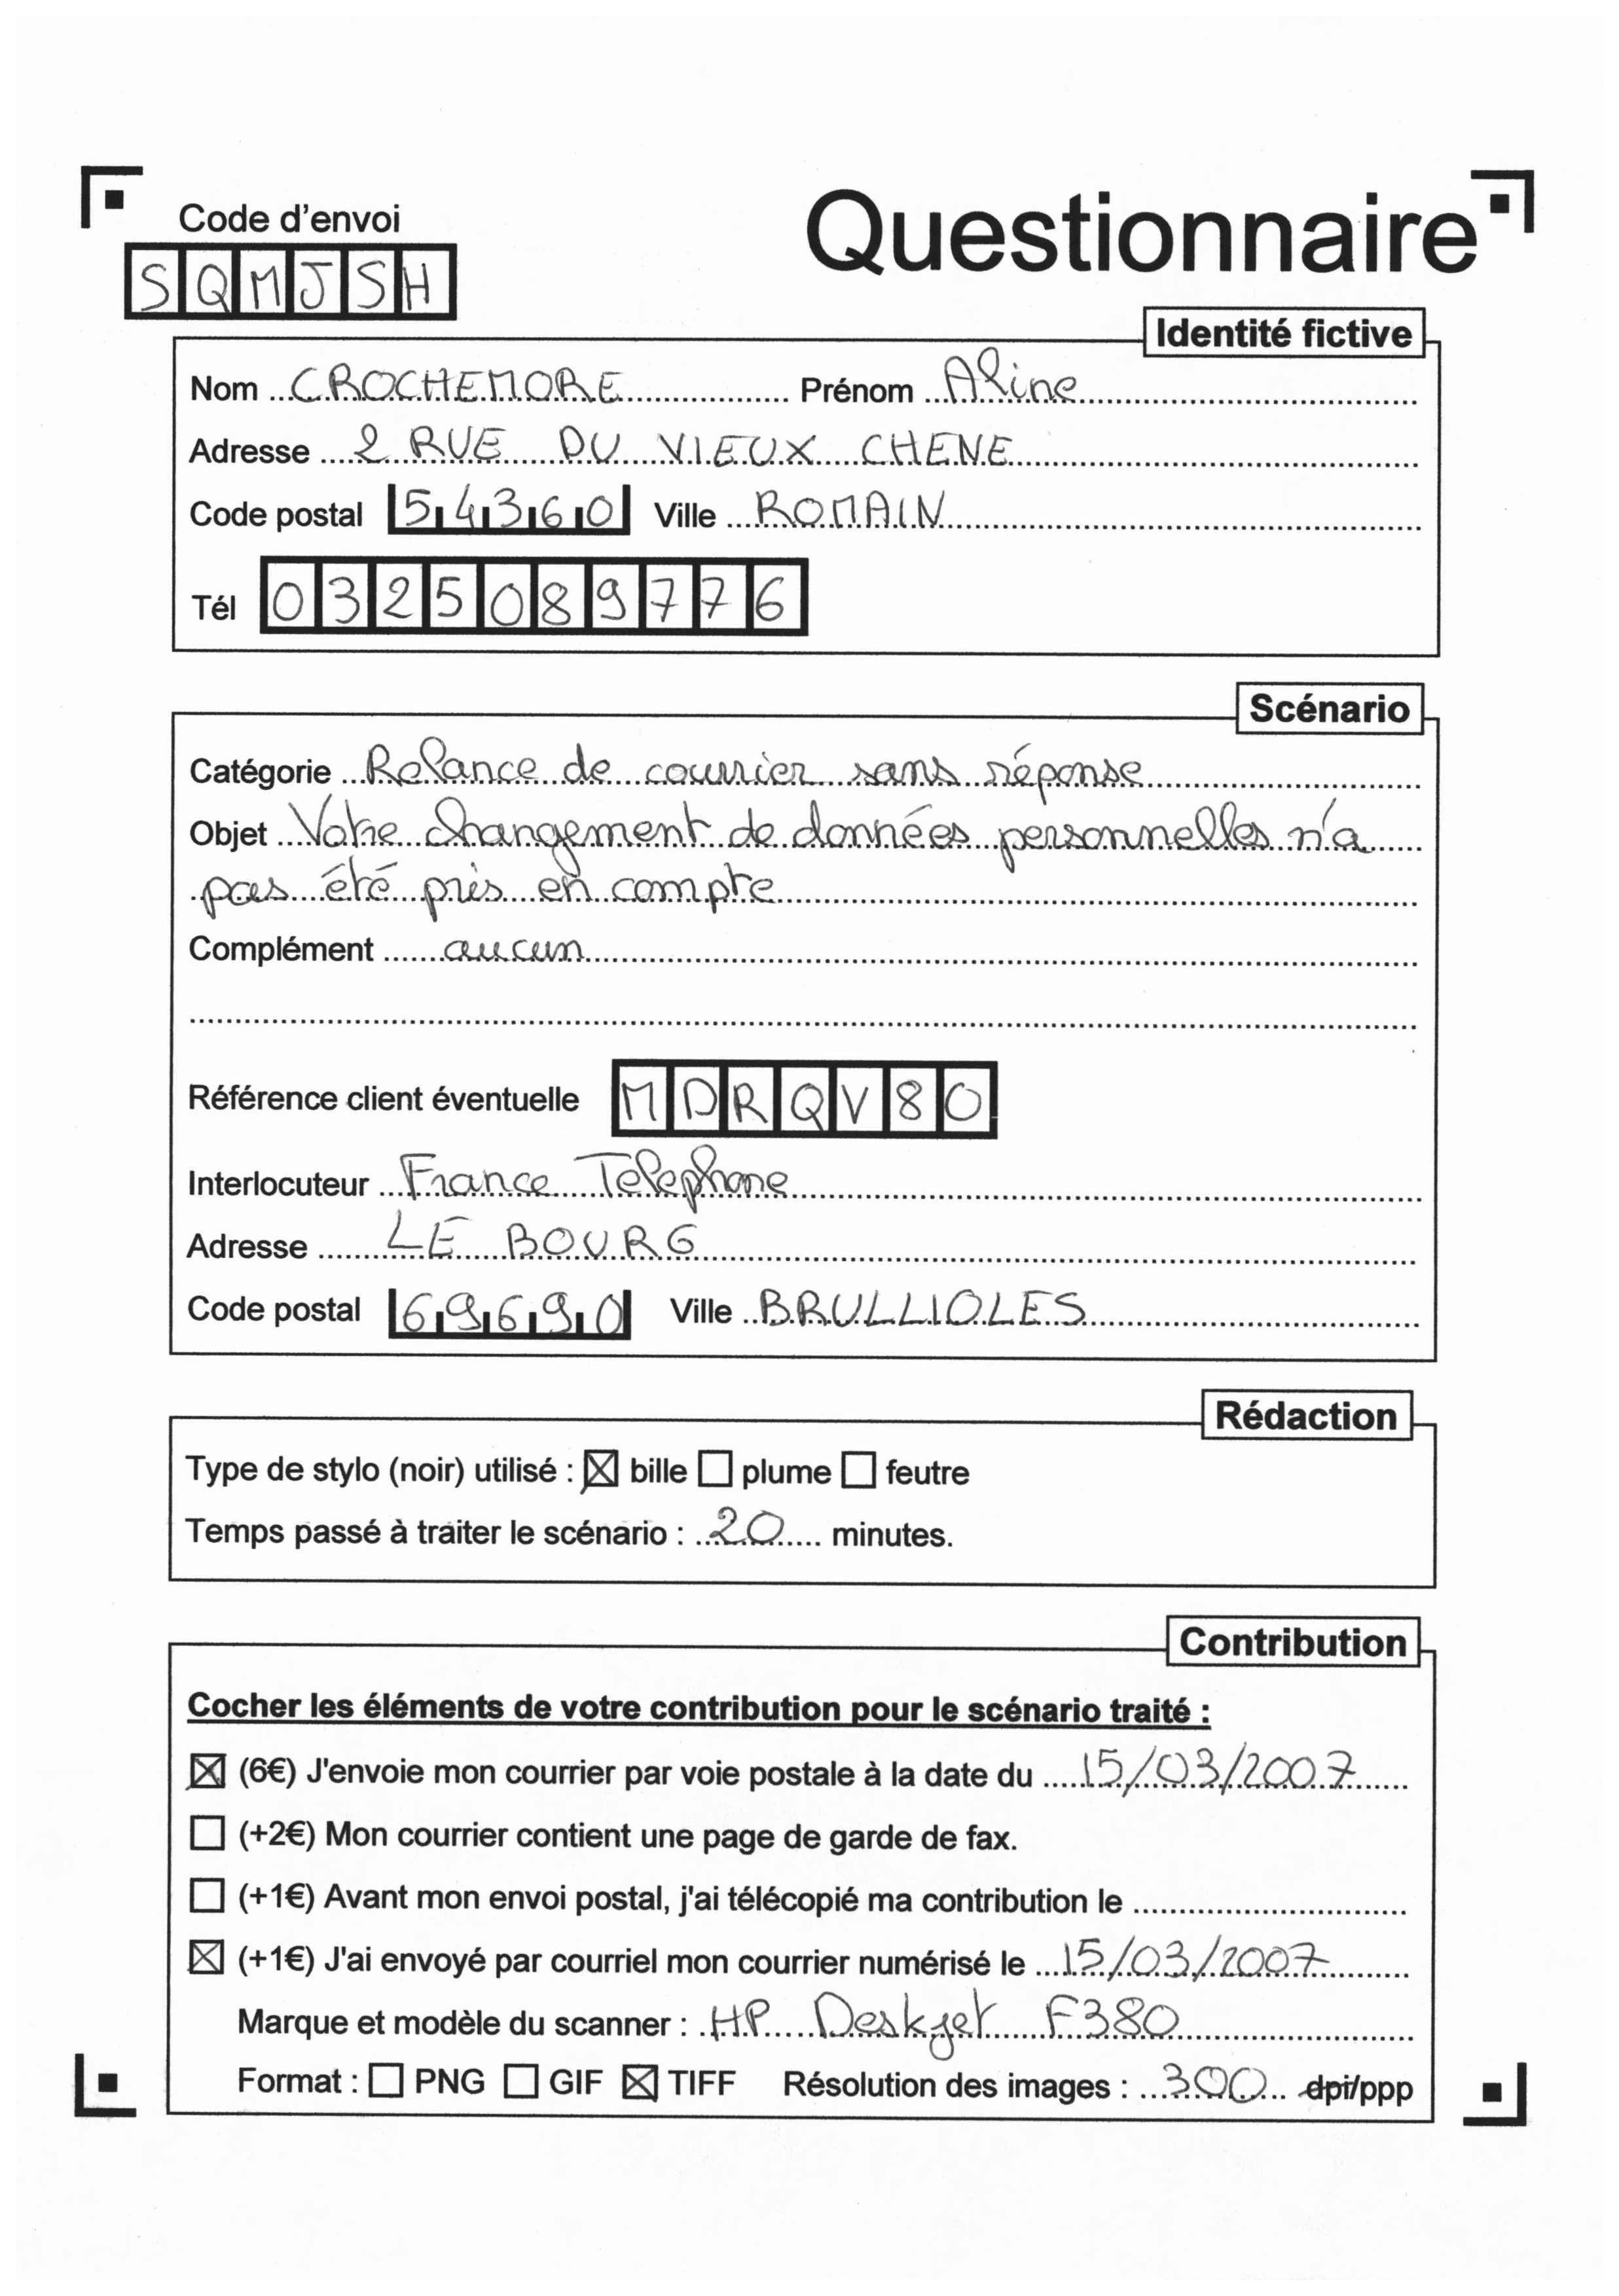 Code d'envoi
Questionnaire
SQMJSH
Identité fictive
Nom CROCHEMORE Prénom Aline
Adresse 2 RUE DU VIEUX CHENE
Code postal 54360 Ville ROMAIN
Tél 0325089776
Scénario
Catégorie Relance de courrier sans réponse
Objet Votre changement de données personnelles n'a
pas été pris en compte
Complément aucun
Référence client éventuelle MDRQV80
Interlocuteur France Telephone
Adresse LE BOURG
Code postal 69690 Ville BRULLIOLES
Rédaction
Type de stylo (noir) utilisé : ☒ bille ☐ plume ☐ feutre
Temps passé à traiter le scénario : 20 minutes.
Contribution
Cocher les éléments de votre contribution pour le scénario traité :
☒ (6€) J'envoie mon courrier par voie postale à la date du 15/03/2007
☐ (+2€) Mon courrier contient une page de garde de fax.
☐ (+1€) Avant mon envoi postal, j'ai télécopié ma contribution le
☒ (+1€) J'ai envoyé par courriel mon courrier numérisé le 15/03/2007
Marque et modèle du scanner : HP Deskjet F380
Format : ☐ PNG ☐ GIF ☒ TIFF Résolution des images : 300 dpi/ppp